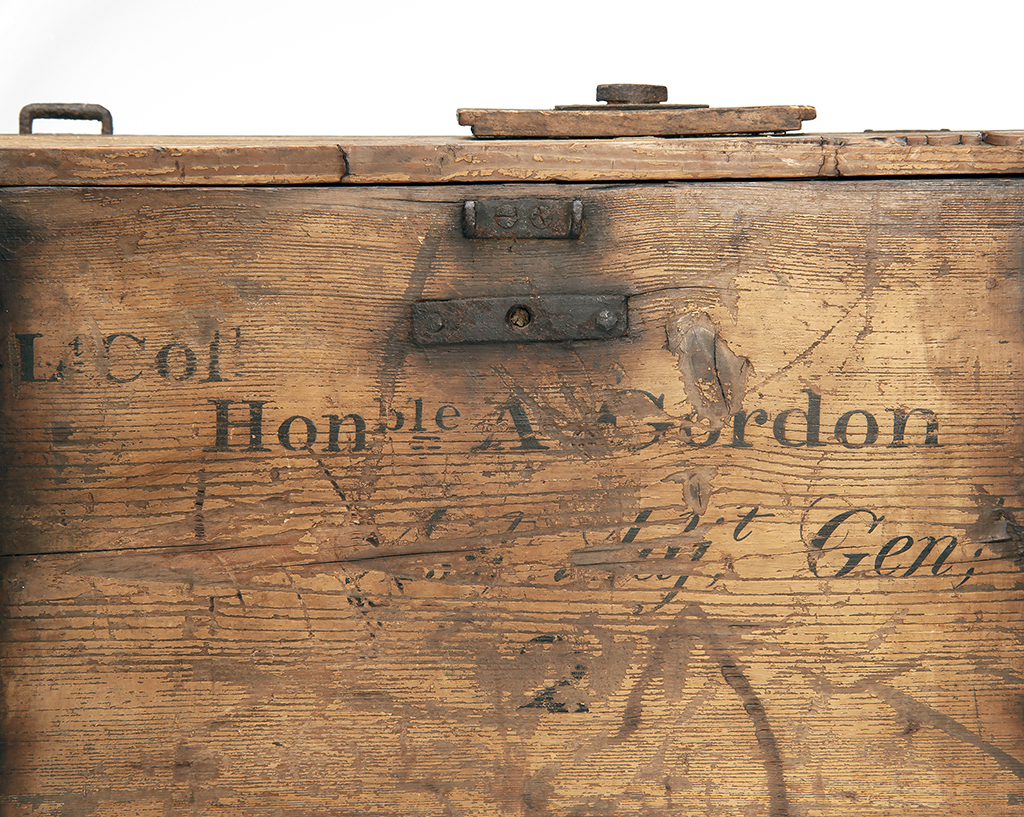 Lt Coll
Honble A Gordon
Adjt Gen;
2